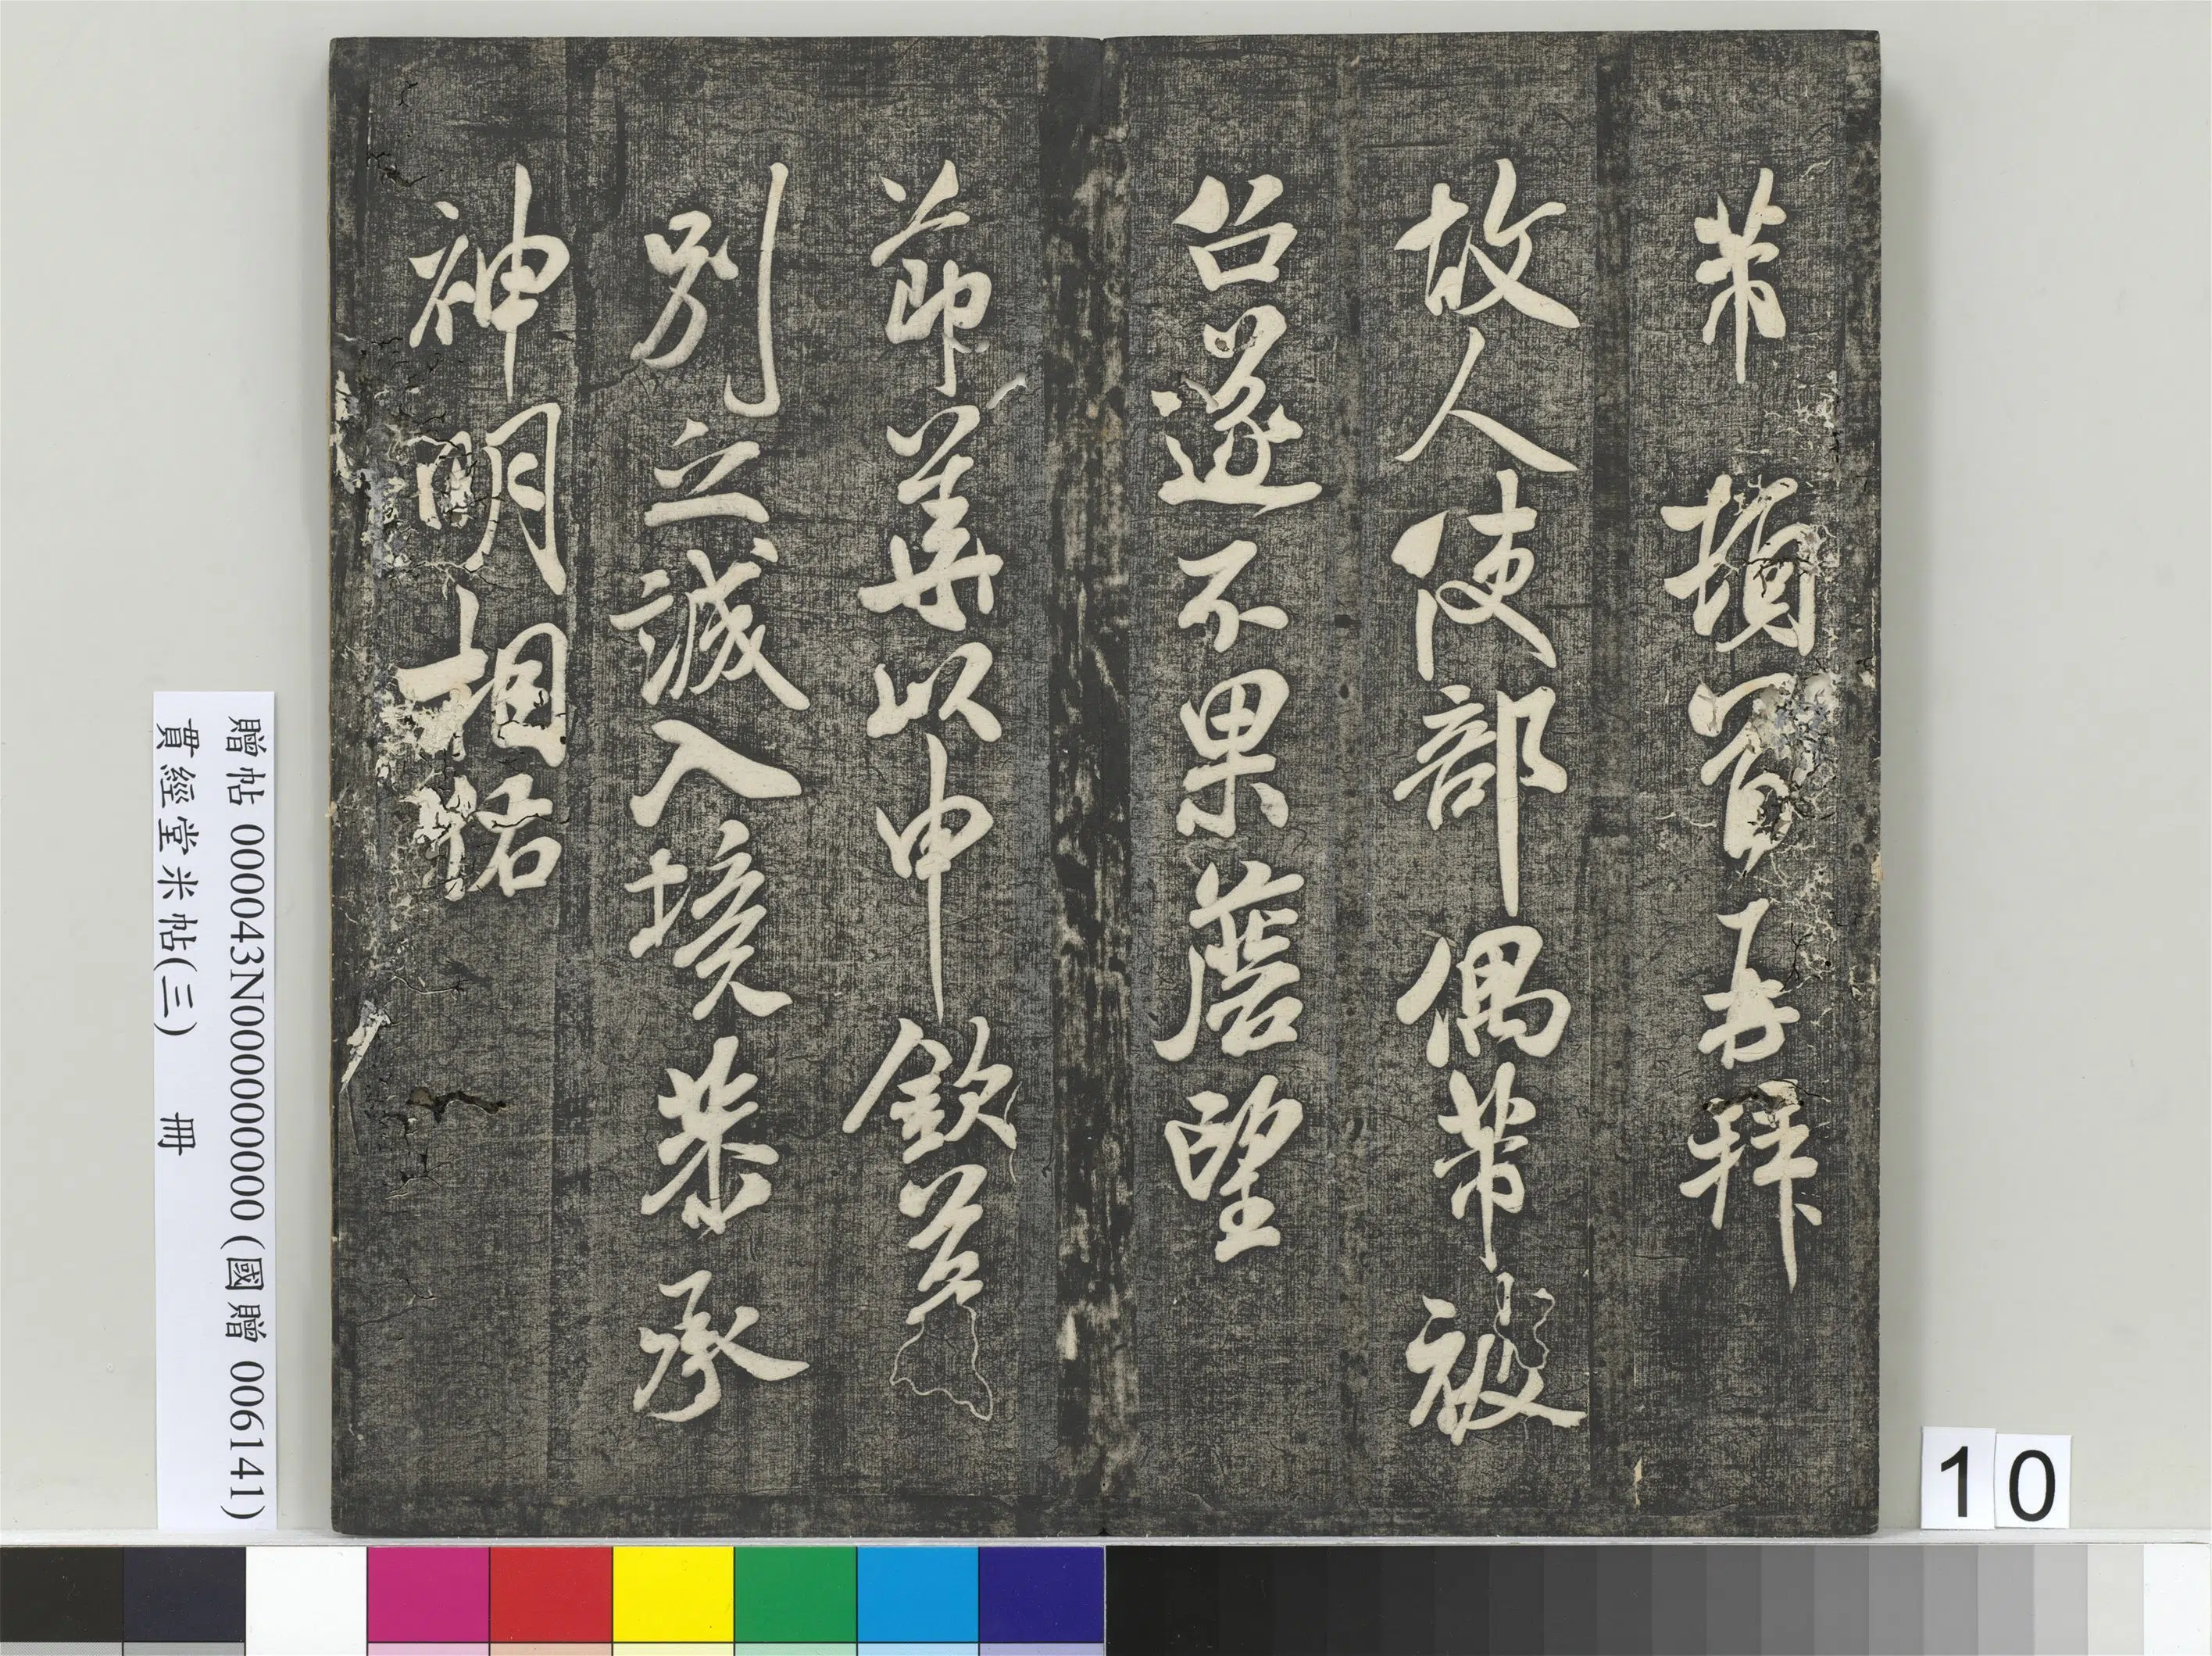 芾頓首再拜
故人使部偶芾被
召遂不果詹望
節華以申欽
別立誠入境恭承
神明相祐
贈帖 000043N000000000 (國贈 006141)
貫經堂米帖(三) 冊
10